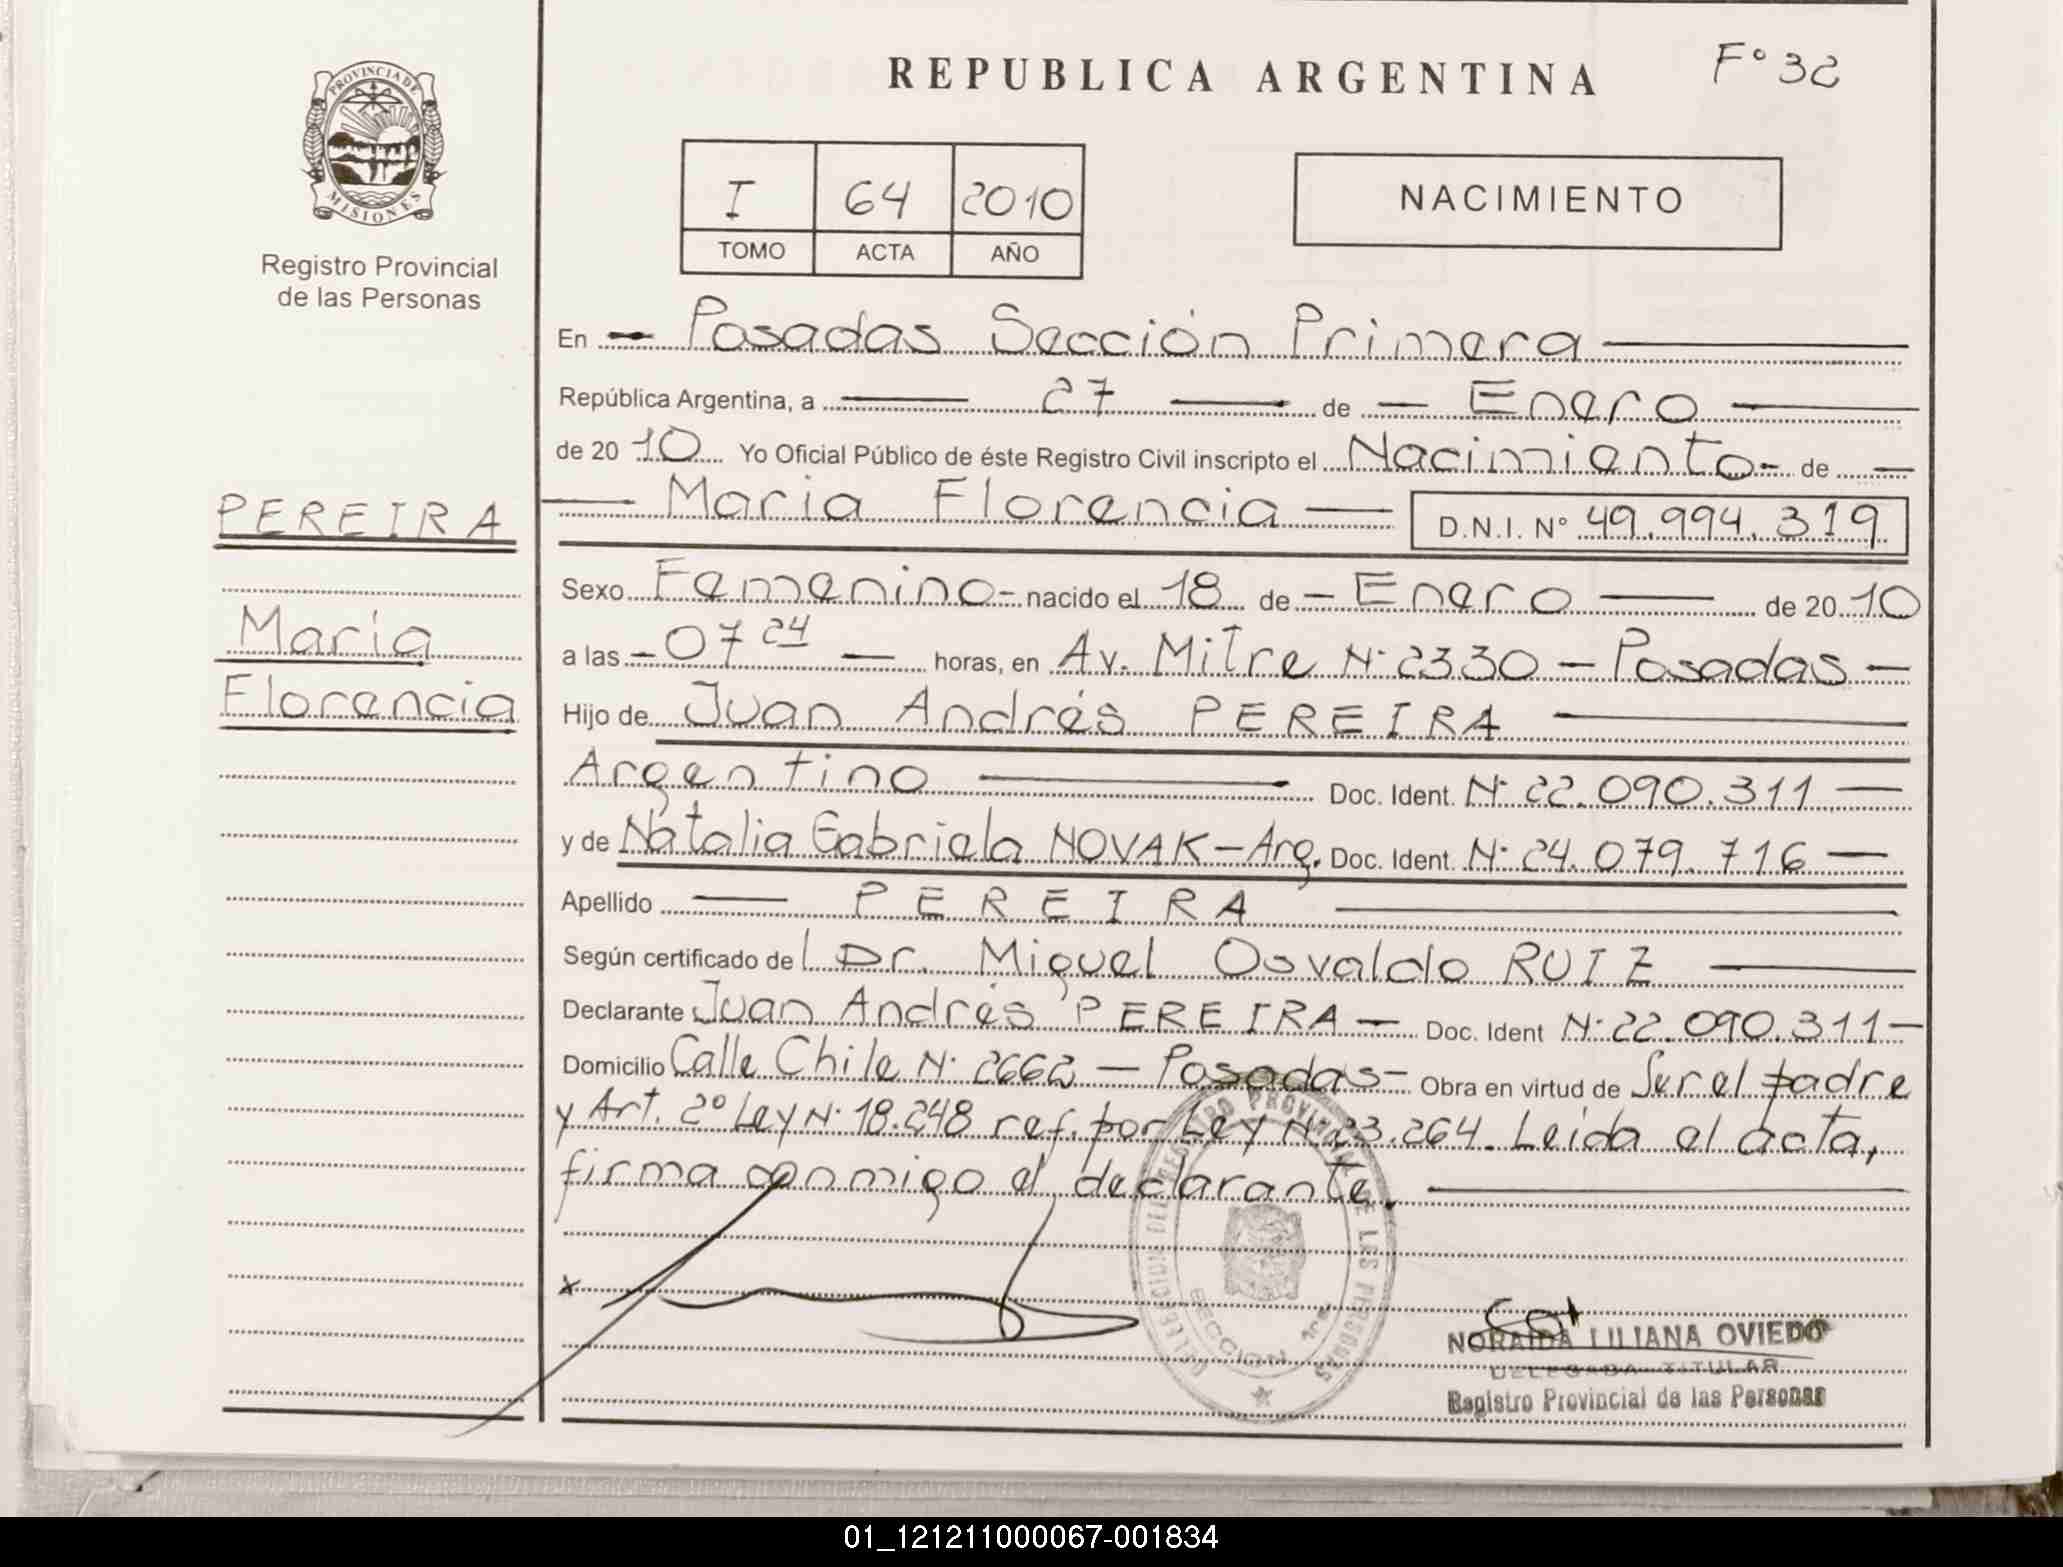 REPUBLICA ARGENTINA
F° 32
PROVINCIA DE
MISIONES
Registro Provincial
de las Personas
I 64 2010
TOMO ACTA AÑO
NACIMIENTO
En - Posadas Sección Primera
República Argentina, a 27 de - Enero
de 2010 Yo Oficial Público de éste Registro Civil inscripto el Nacimiento - de
PEREIRA
Maria Florencia D.N.I. N° 49.994.319
Sexo Femenino - nacido el 18 de - Enero de 2010
María
a las - 07 24 horas, en Av. Mitre N· 2330 - Posadas -
Florencia
Hijo de Juan Andrés PEREIRA
Argentino Doc. Ident. N· 22.090.311
y de Natalia Gabriela NOVAK - Arg. Doc. Ident. N· 24.079.716
Apellido PEREIRA
Según certificado del Dr. Miguel Osvaldo RUIZ
Declarante Juan Andrés PEREIRA - Doc. Ident N· 22.090.311 -
Domicilio Calle Chile N· 2662 - Posadas - Obra en virtud de Ser el padre
y Art. 2° Ley N· 18.248 ref. por Ley N· 23.264. Leida el acta,
firma conmigo el declarante.
x
DIRECCION DEL REGISTRO PROVINCIAL DE LAS PERSONAS
SECCION 1ra
NORAIDA LILIANA OVIEDO
DELEGADA TITULAR
Registro Provincial de las Personas
01_121211000067-001834